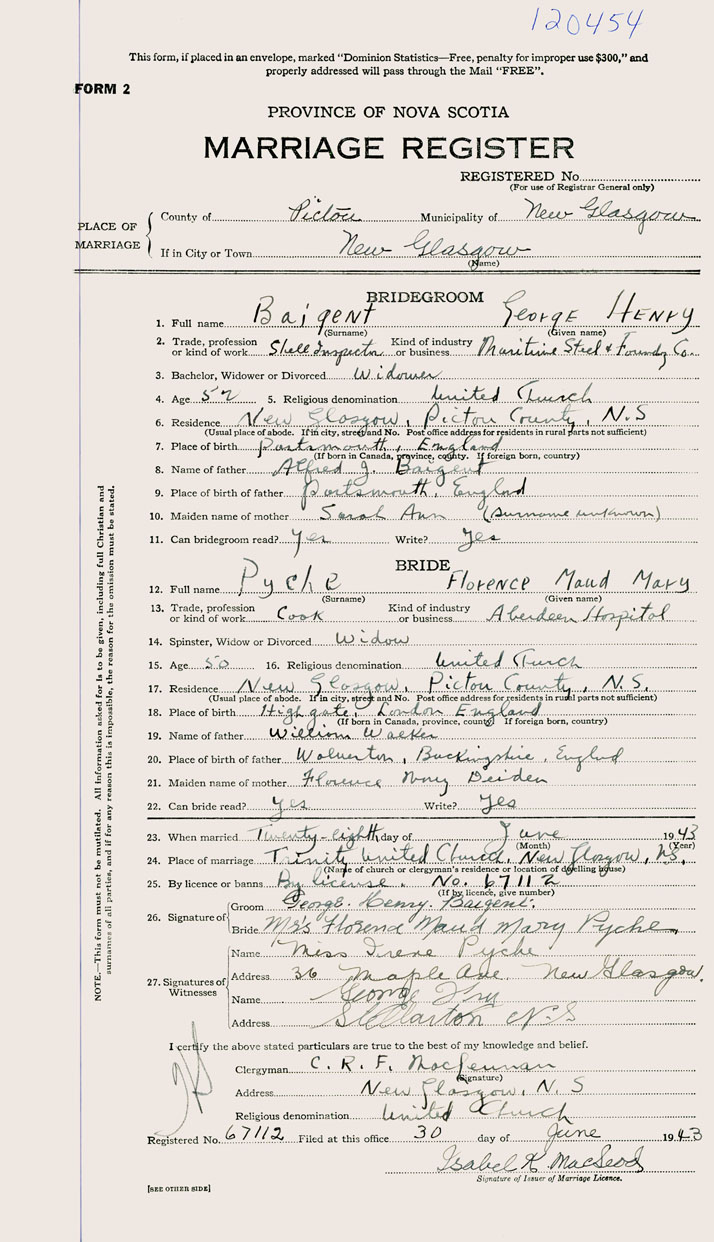 120454
This form, if placed in an envelope, marked "Dominion Statistics—Free, penalty for improper use $300," and
properly addressed will pass through the Mail "FREE".
FORM 2
PROVINCE OF NOVA SCOTIA
MARRIAGE REGISTER
REGISTERED No.
(For use of Registrar General only)
PLACE OF MARRIAGE
County of Pictou Municipality of New Glasgow
If in City or Town New Glasgow
(Name)
BRIDEGROOM
1. Full name Baigent George Henry
(Surname) (Given name)
2. Trade, profession or kind of work Shell Inspector Kind of industry or business Maritime Steel & Foundry Co.
3. Bachelor, Widower or Divorced Widower
4. Age 52 5. Religious denomination United Church
6. Residence New Glasgow, Pictou County, N.S
(Usual place of abode. If in city, street and No. Post office address for residents in rural parts not sufficient)
7. Place of birth Portsmouth, England
(If born in Canada, province, county. If foreign born, country)
8. Name of father Alfred J. Baigent
9. Place of birth of father Portsmouth, England
10. Maiden name of mother Sarah Ann (surname unknown)
11. Can bridegroom read? Yes Write? Yes
BRIDE
12. Full name Pyche Florence Maud Mary
(Surname) (Given name)
13. Trade, profession or kind of work Cook Kind of industry or business Aberdeen Hospital
14. Spinster, Widow or Divorced Widow
15. Age 50 16. Religious denomination United Church
17. Residence New Glasgow, Pictou County, N.S.
(Usual place of abode. If in city, street and No. Post office address for residents in rural parts not sufficient)
18. Place of birth Highgate, London England
(If born in Canada, province, county If foreign born, country)
19. Name of father William Walker
20. Place of birth of father Wolverton, Buckingshire, England
21. Maiden name of mother Florence Mary
22. Can bride read? Yes Write? Yes
23. When married Twenty-eighth day of June 1943
(Month) (Year)
24. Place of marriage Trinity United Church, New Glasgow, N.S.
(Name of church or clergyman's residence or location of dwelling house)
25. By licence or banns By license. No. 67112
(If by licence, give number)
26. Signature of
Groom George Henry Baigent.
Bride Mrs Florence Maud Mary Pyche
27. Signatures of Witnesses
Name Miss Irene Pyche
Address 36 Maple Ave. New Glasgow.
Name George
Address Stellarton N.S
I certify the above stated particulars are true to the best of my knowledge and belief.
Clergyman C. R. F. MacLennan
(Signature)
Address New Glasgow, N. S
Religious denomination United Church
Registered No. 67112 Filed at this office 30 day of June 1943
Isabel K MacLeod
Signature of Issuer of Marriage Licence.
[SEE OTHER SIDE]
NOTE.—This form must not be mutilated. All information asked for is to be given, including full Christian and
surnames of all parties, and if for any reason this is impossible, the reason for the omission must be stated.